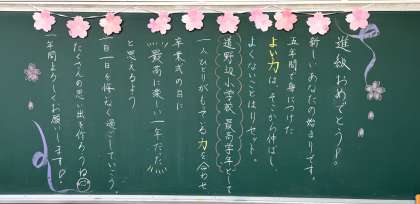 進級おめでとう!!
新しいあなたの始まりです。
五年間で身につけた
よい力は、そこから伸ばし、
よくないことはリセット。
道野辺小学校最高学年として
一人ひとりがもてる力を合わせ
卒業式の日に
"最高に楽しい一年だった"
と思えるよう
一日一日を悔なく過ごしていこう。
たくさんの思い出を作ろうね
一年間よろしくお願いします!